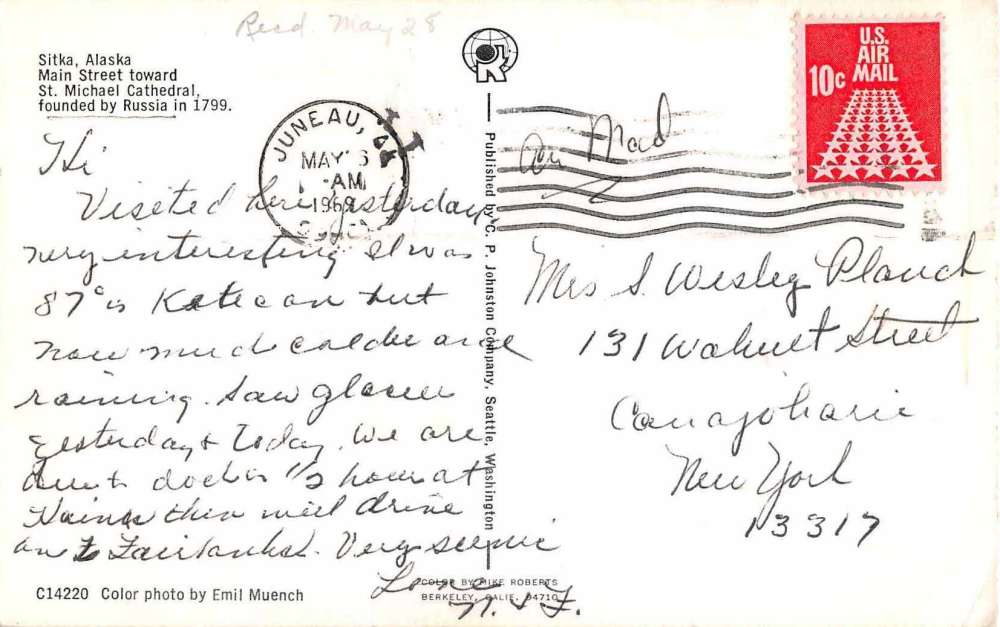 Recd. May 28
Sitka, Alaska
Main Street toward
St. Michael Cathedral,
founded by Russia in 1799.
U.S.
AIR
MAIL
10c
JUNEAU,
MAY
AM
1969
Air Mail
Hi
Visited here yesterday
very interesting It was
87° in but
now much colder and
raining. Saw glacier
yesterday & Today. We are
to dock in ½ hour at
Haines then will drive
on to Fairbanks. Very scenic
Love
N. & F.
Mrs S. Wesley Planck
131 Walnut Street
Canajoharie
New York
13317
Published by C. P. Johnston Company, Seattle, Washington
C14220 Color photo by Emil Muench
COLOR BY MIKE ROBERTS
BERKELEY, CALIF. 94710